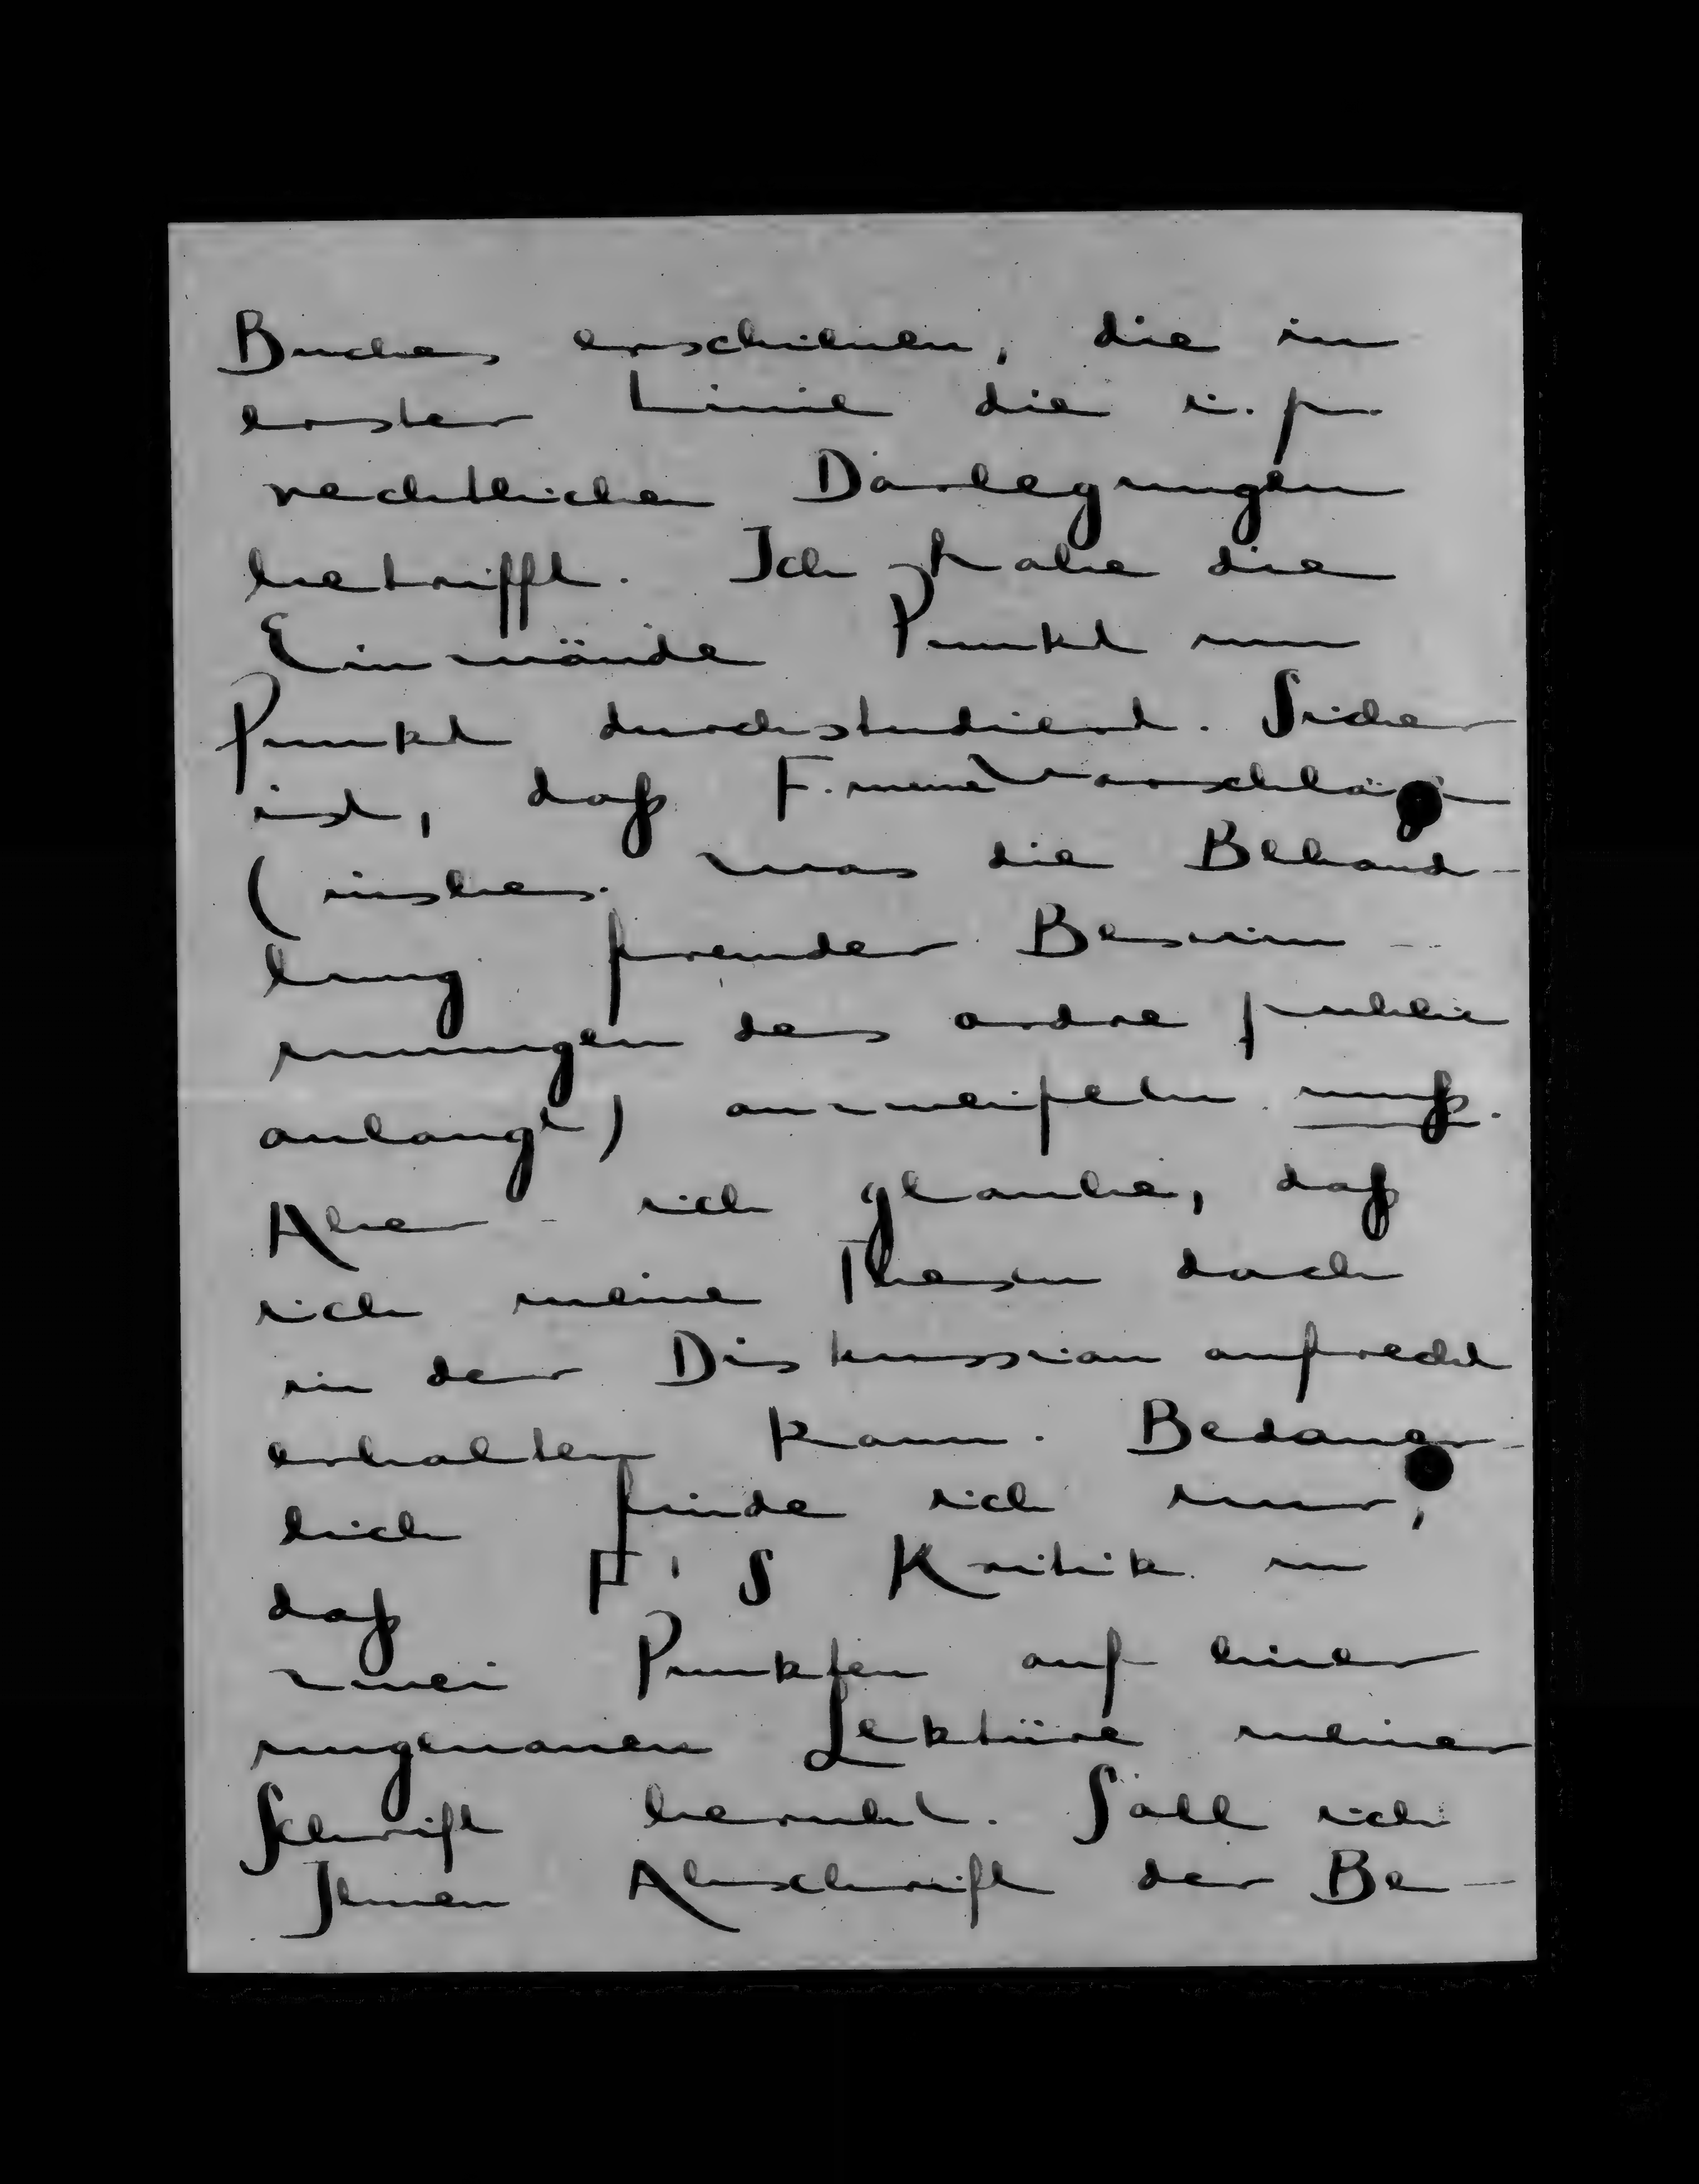 Buches erschienen, die in
erster Linie die i. pr.
rechtlichen Darlegungen
betrifft. Ich habe die
Einwände Punkt um
Punkt durchstudiert. Sicher
ist, daß F. meine Vorschläge
(insbes. was die Behand-
lung fremder Bestim-
mungen des ordre public
anlangt) anzweifeln muß.
Aber ich glaube, daß
ich meine Thesen doch
in der Diskussion aufrecht
erhalten kann. Bedauer-
lich finde ich nur,
daß F's Kritik in
zwei Punkten auf einer
ungenauen Lektüre meiner
Schrift beruht. Soll ich
Ihnen Abschrift der Be-